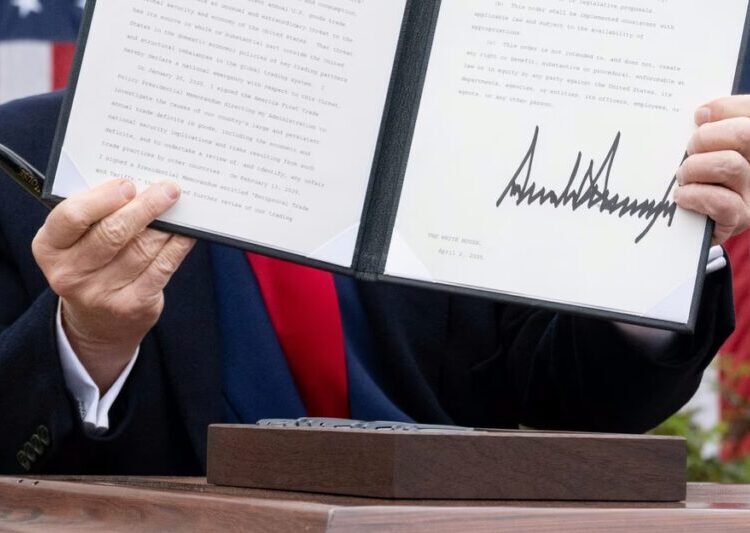 has its source in whole or substantial part outside the United
States in the domestic economic policies of key trading partners
and structural imbalances in the global trading system. I
hereby declare a national emergency with respect to this threat.
On January 20, 2025, I signed the America First Trade
Policy Presidential Memorandum directing my Administration to
investigate the causes of our country's large and persistent
annual trade deficits in goods, including the economic and
national security implications and risks resulting from such
deficits, and to undertake a review of, and identify, any unfair
trade practices by other countries. On February 13, 2025,
I signed a Presidential Memorandum entitled "Reciprocal Trade
and Tariffs," further review of our trading
(b) This order shall be implemented consistent with
applicable law and subject to the availability of
appropriations.
(c) This order is not intended to, and does not, create
any right or benefit, substantive or procedural, enforceable at
law or in equity by any party against the United States, its
departments, agencies, or entities, its officers, employees, or
agents, or any other person.
THE WHITE HOUSE,
April 2, 2025.